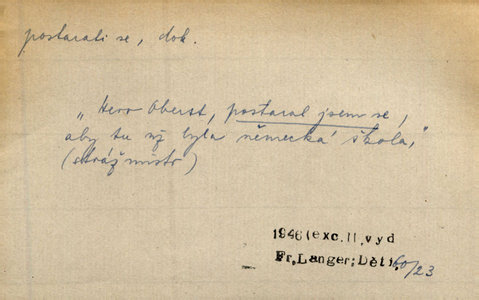 postarati se, dok.
„Herr Oberst, postaral jsem se,
aby tu už byla německá škola,“
(strážmistr)
1946(exc.II,vyd
Fr,Langer;Děti, 60/23